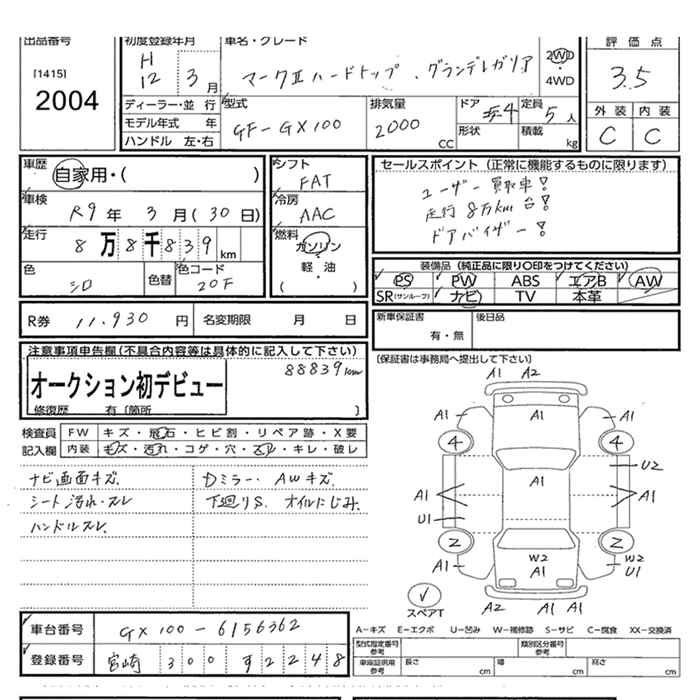 出品番号 初度登録年月 車名・グレード 評価点
[1415] 2004
H 12 3月 マークⅡハードトップ・グランデレガリア 2WD・4WD 3.5
ディーラー・並行 型式 排気量 ドア 定員 外装 内装
モデル年式 年 GF-GX100 2000CC 4 5人 C C
ハンドル 左・右 形状 積載 kg
車歴 自家用・( ) シフト FAT セールスポイント(正常に機能するものに限ります)
車検 R9年 3月(30日) 冷房 AAC ユーザー買取車!
走行8万km台!
走行 8万8千839km 燃料 ガソリン・軽・油( ) ドアバイザー!
色 シロ 色替 色コード 20F 装備品(純正品に限り〇印をつけてください)
PS PW ABS エアB AW
SR(サンルーフ) ナビ TV 本革
R券 11,930円 名変期限 月 日 新車保証書 有・無 後日品
注意事項申告欄(不具合内容等は具体的に記入して下さい) (保証書は事務局へ提出して下さい)
88839km
オークション初デビュー
修復歴 有〔箇所 〕
検査員 FW キズ・飛石・ヒビ割・リペア跡・X要
記入欄 内装 キズ・汚れ・コゲ・穴・スレ・キレ・破レ
ナビ画面キズ. Dミラー. AWキズ.
シート汚れ・スレ 下廻りS. オイルにじみ.
ハンドルスレ.
A1 A2
A1 A1 A1
4 4
A1 U2
A1 A1
U1
2 2
W2 W2
A1 A1 U1
スペアT A2 A1
A-キズ E-エクボ U-凹み W-補修跡 S-サビ C-腐食 XX-交換済
車台番号 GX100-6156362 型式指定番号 参考 類別区分番号 参考
登録番号 宮崎 300 す 2248 車庫証明用 参考 長さ cm 幅 cm 高さ cm